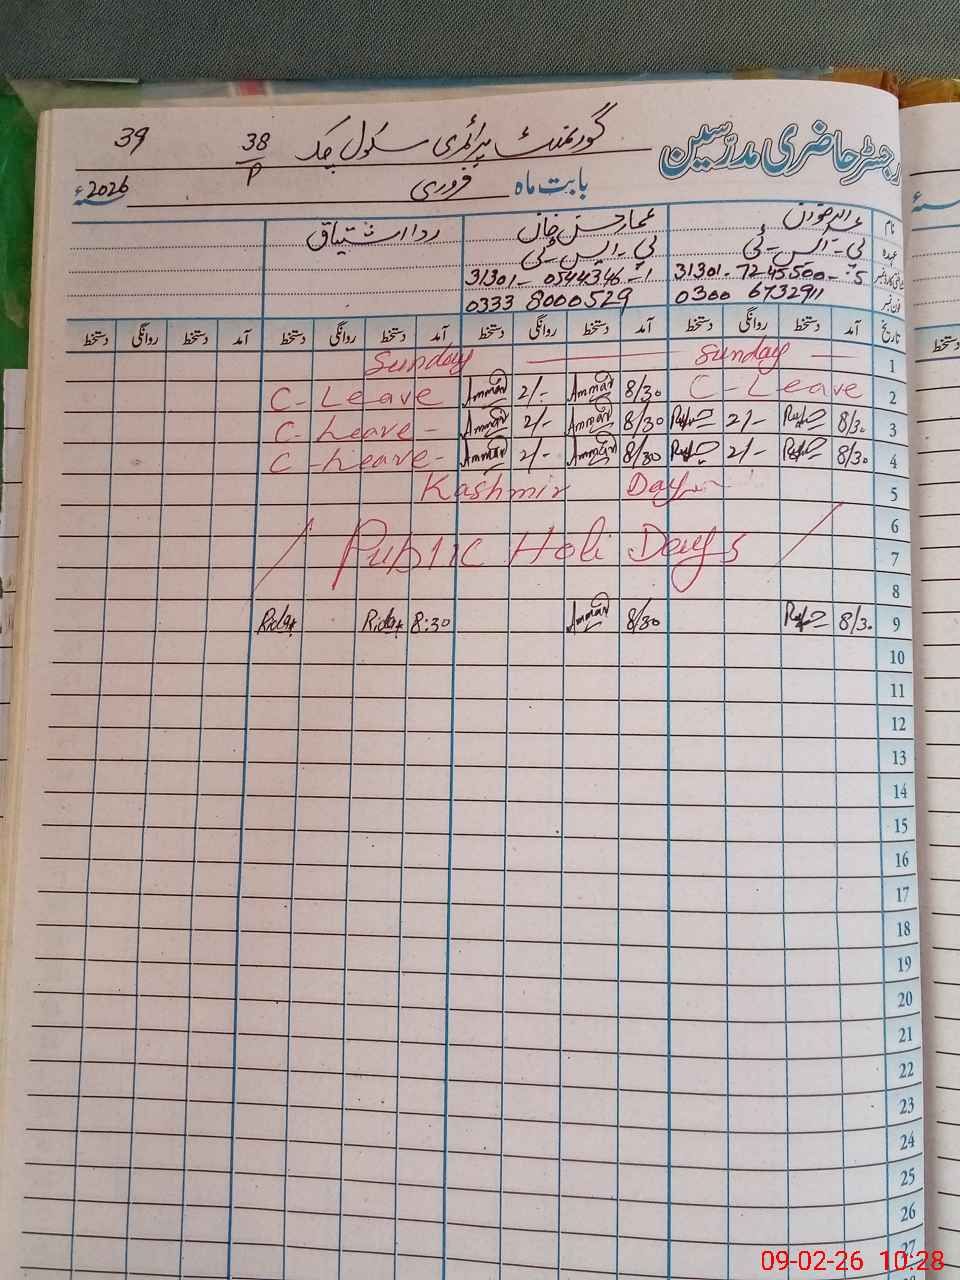 39
رجسٹر حاضری مدرسین گورنمنٹ پرائمری سکول چک 38/P
بابت ماہ فروری 2026ء
نام عمار حسن خان ردا اشتیاق
عہدہ پی۔ایس۔ٹی پی۔ایس۔ٹی
31301-7245500-5 31301-0544346-1
فون نمبر 0300 6732911 0333 8000529
تاریخ آمد دستخط روانگی دستخط آمد دستخط روانگی دستخط آمد دستخط روانگی دستخط آمد دستخط روانگی دستخط
1 Sunday Sunday
2 C-Leave 8/30 Ammar 2/- Ammar C-Leave
3 8/30 2/- 8/30 Ammar 2/- Ammar C-Leave-
4 8/30 2/- 8/30 Ammar 2/- Ammar C-Leave-
5 Kashmir Day
6
7 Public Holi Days
8
9 8/30 8/30 Ammar 8:30 Rida Rida
10
11
12
13
14
15
16
17
18
19
20
21
22
23
24
25
26
27
دستخط
09-02-26 10:28